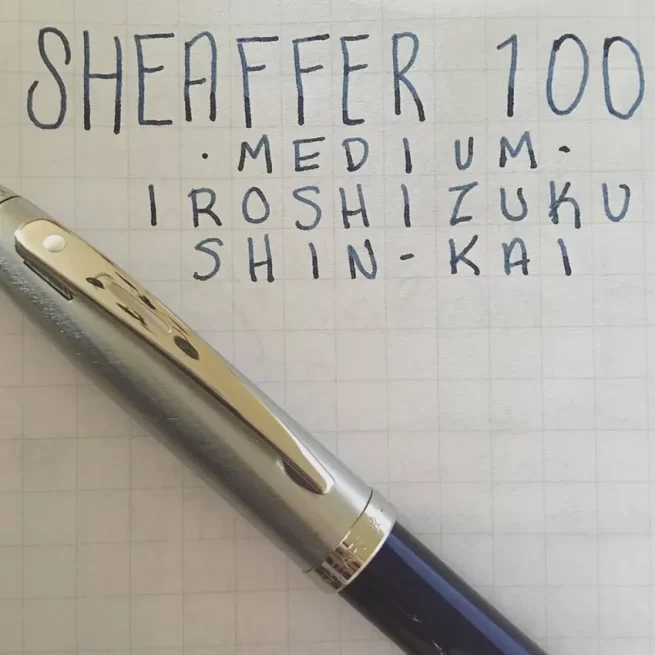 SHEAFFER 100
· MEDIUM ·
IROSHIZUKU
SHIN-KAI